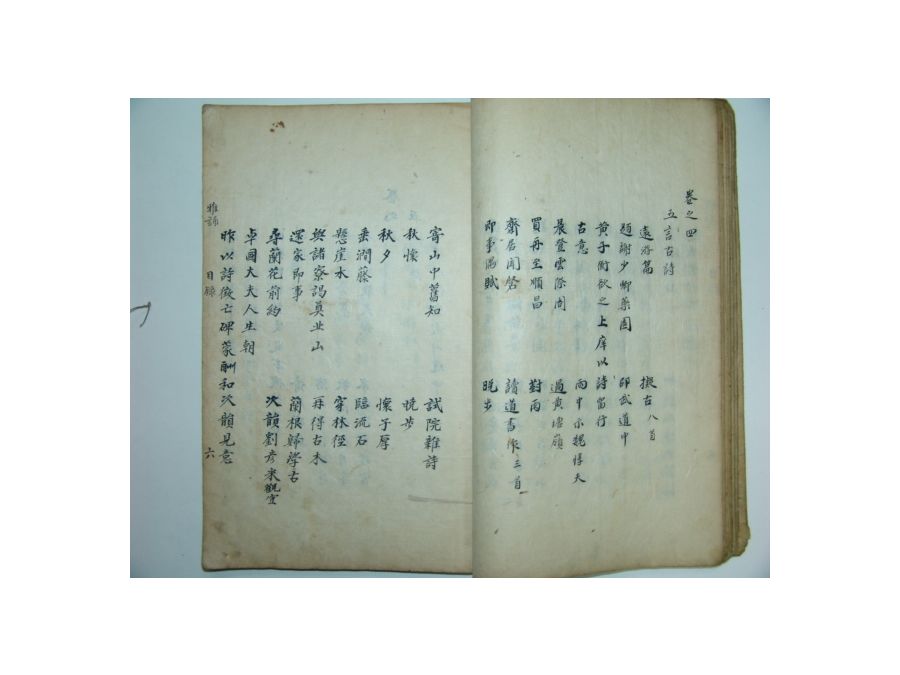 卷之四
五言古詩
遠游篇 擬古八首
題謝少卿藥園 邵武道中
黃子衡欲之上庠以詩留行
古意 雨中示魏惇夫
晨登雲際閣 過黃塘嶺
買舟至順昌 對雨
齋居聞磬 讀道書作三首
即事偶賦 晚步
寄山中舊知 試院雜詩
秋懷 晚步
秋夕 懷子厚
垂澗藤 臨流石
懸崖水 穿林徑
與諸寮謁奠北山 再得古木
還家即事 蘭根歸學古
尋蘭花前約 次韻劉彥采觀雪
卓國太夫人生朝
昨以詩徵亡碑蒙酬和次韻見意
雅誦 目錄 六